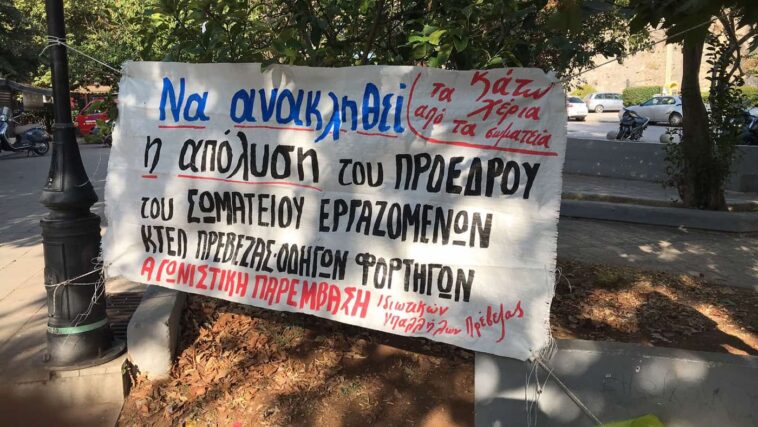 Να ανακληθεί (τα κάτω χέρια
από τα σωματεία
η απόλυση του ΠΡΟΕΔΡΟΥ
του ΣΩΜΑΤΕΙΟΥ ΕΡΓΑΖΟΜΕΝΩΝ
ΚΤΕΛ ΠΡΕΒΕΖΑΣ-ΟΔΗΓΩΝ ΦΟΡΤΗΓΩΝ
ΑΓΩΝΙΣΤΙΚΗ ΠΑΡΕΜΒΑΣΗ Ιδιωτικών
Υπαλλήλων Πρέβεζας